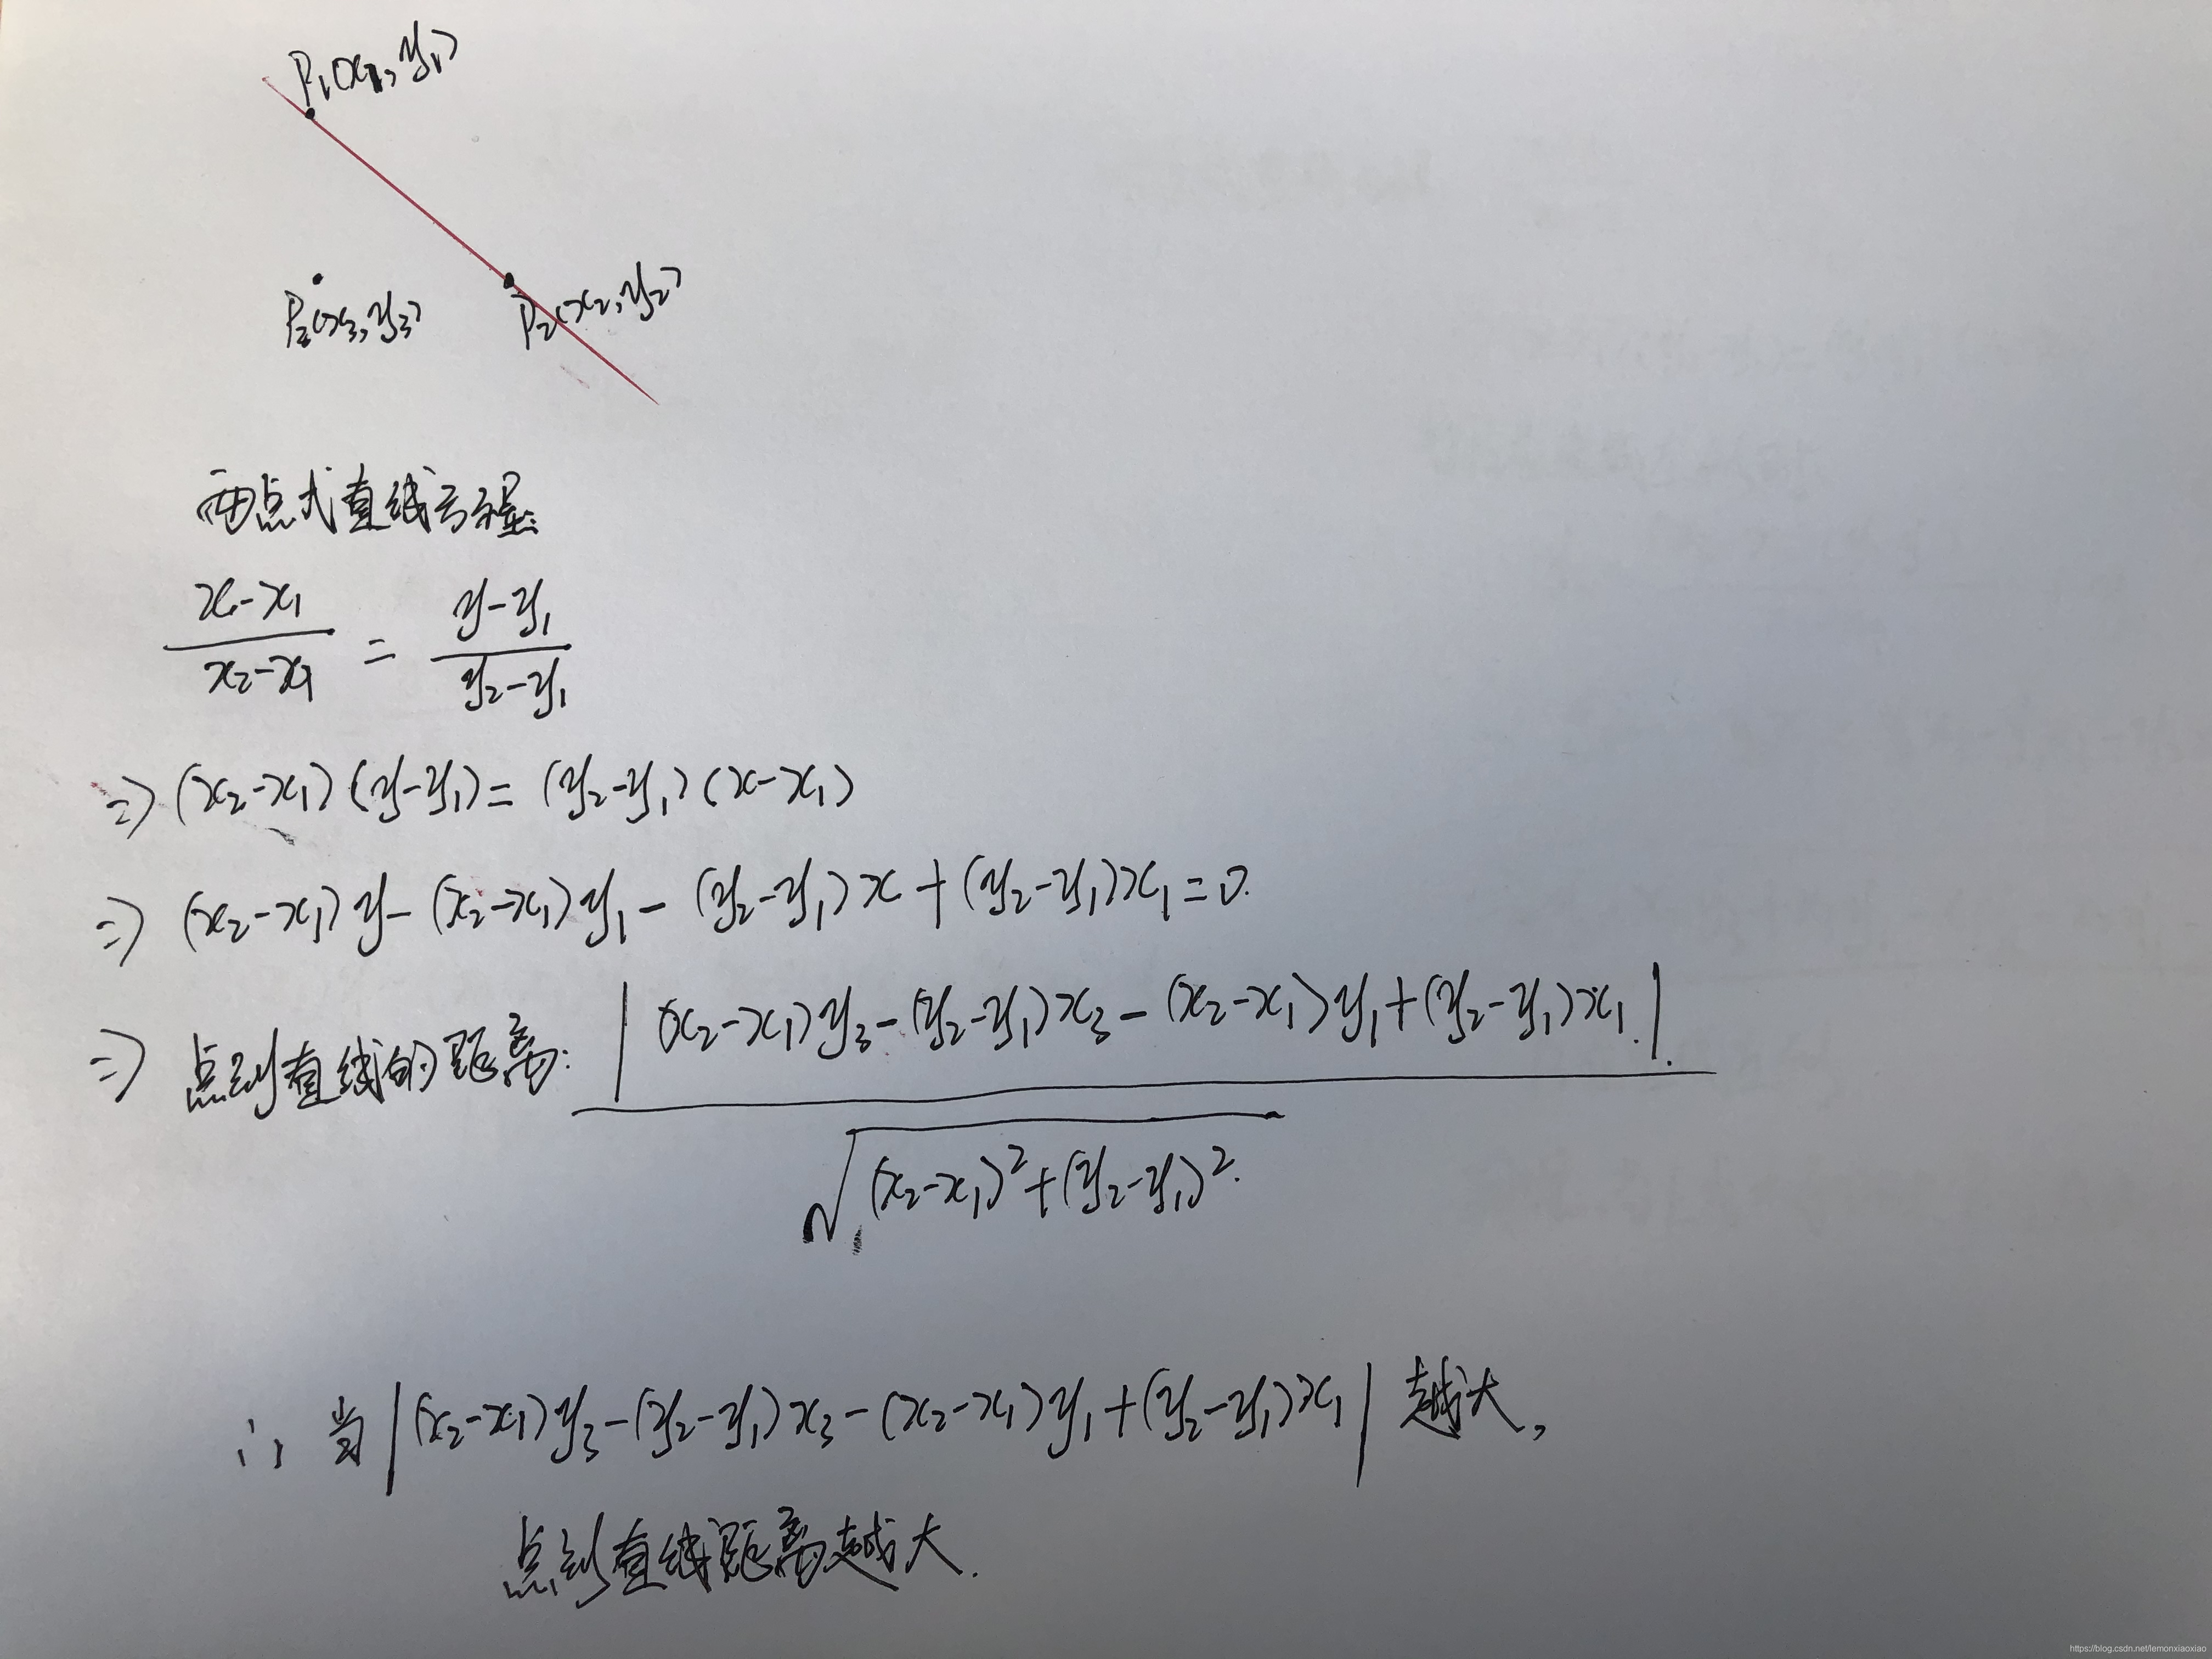 P₁(x₁,y₁)
P₂(x₂,y₂)
(x₃,y₃)
两点式直线方程:
(x-x₁)/(x₂-x₁) = (y-y₁)/(y₂-y₁)
⇒ (x₂-x₁)(y-y₁)=(y₂-y₁)(x-x₁)
⇒ (x₂-x₁)y-(x₂-x₁)y₁-(y₂-y₁)x+(y₂-y₁)x₁=0.
⇒ 点到直线的距离: |(x₂-x₁)y₃-(y₂-y₁)x₃-(x₂-x₁)y₁+(y₂-y₁)x₁| / √((x₂-x₁)²+(y₂-y₁)²)
∴ 当|(x₂-x₁)y₃-(y₂-y₁)x₃-(x₂-x₁)y₁+(y₂-y₁)x₁|越大,
点到直线距离越大.
https://blog.csdn.net/lemonxiaoxiao